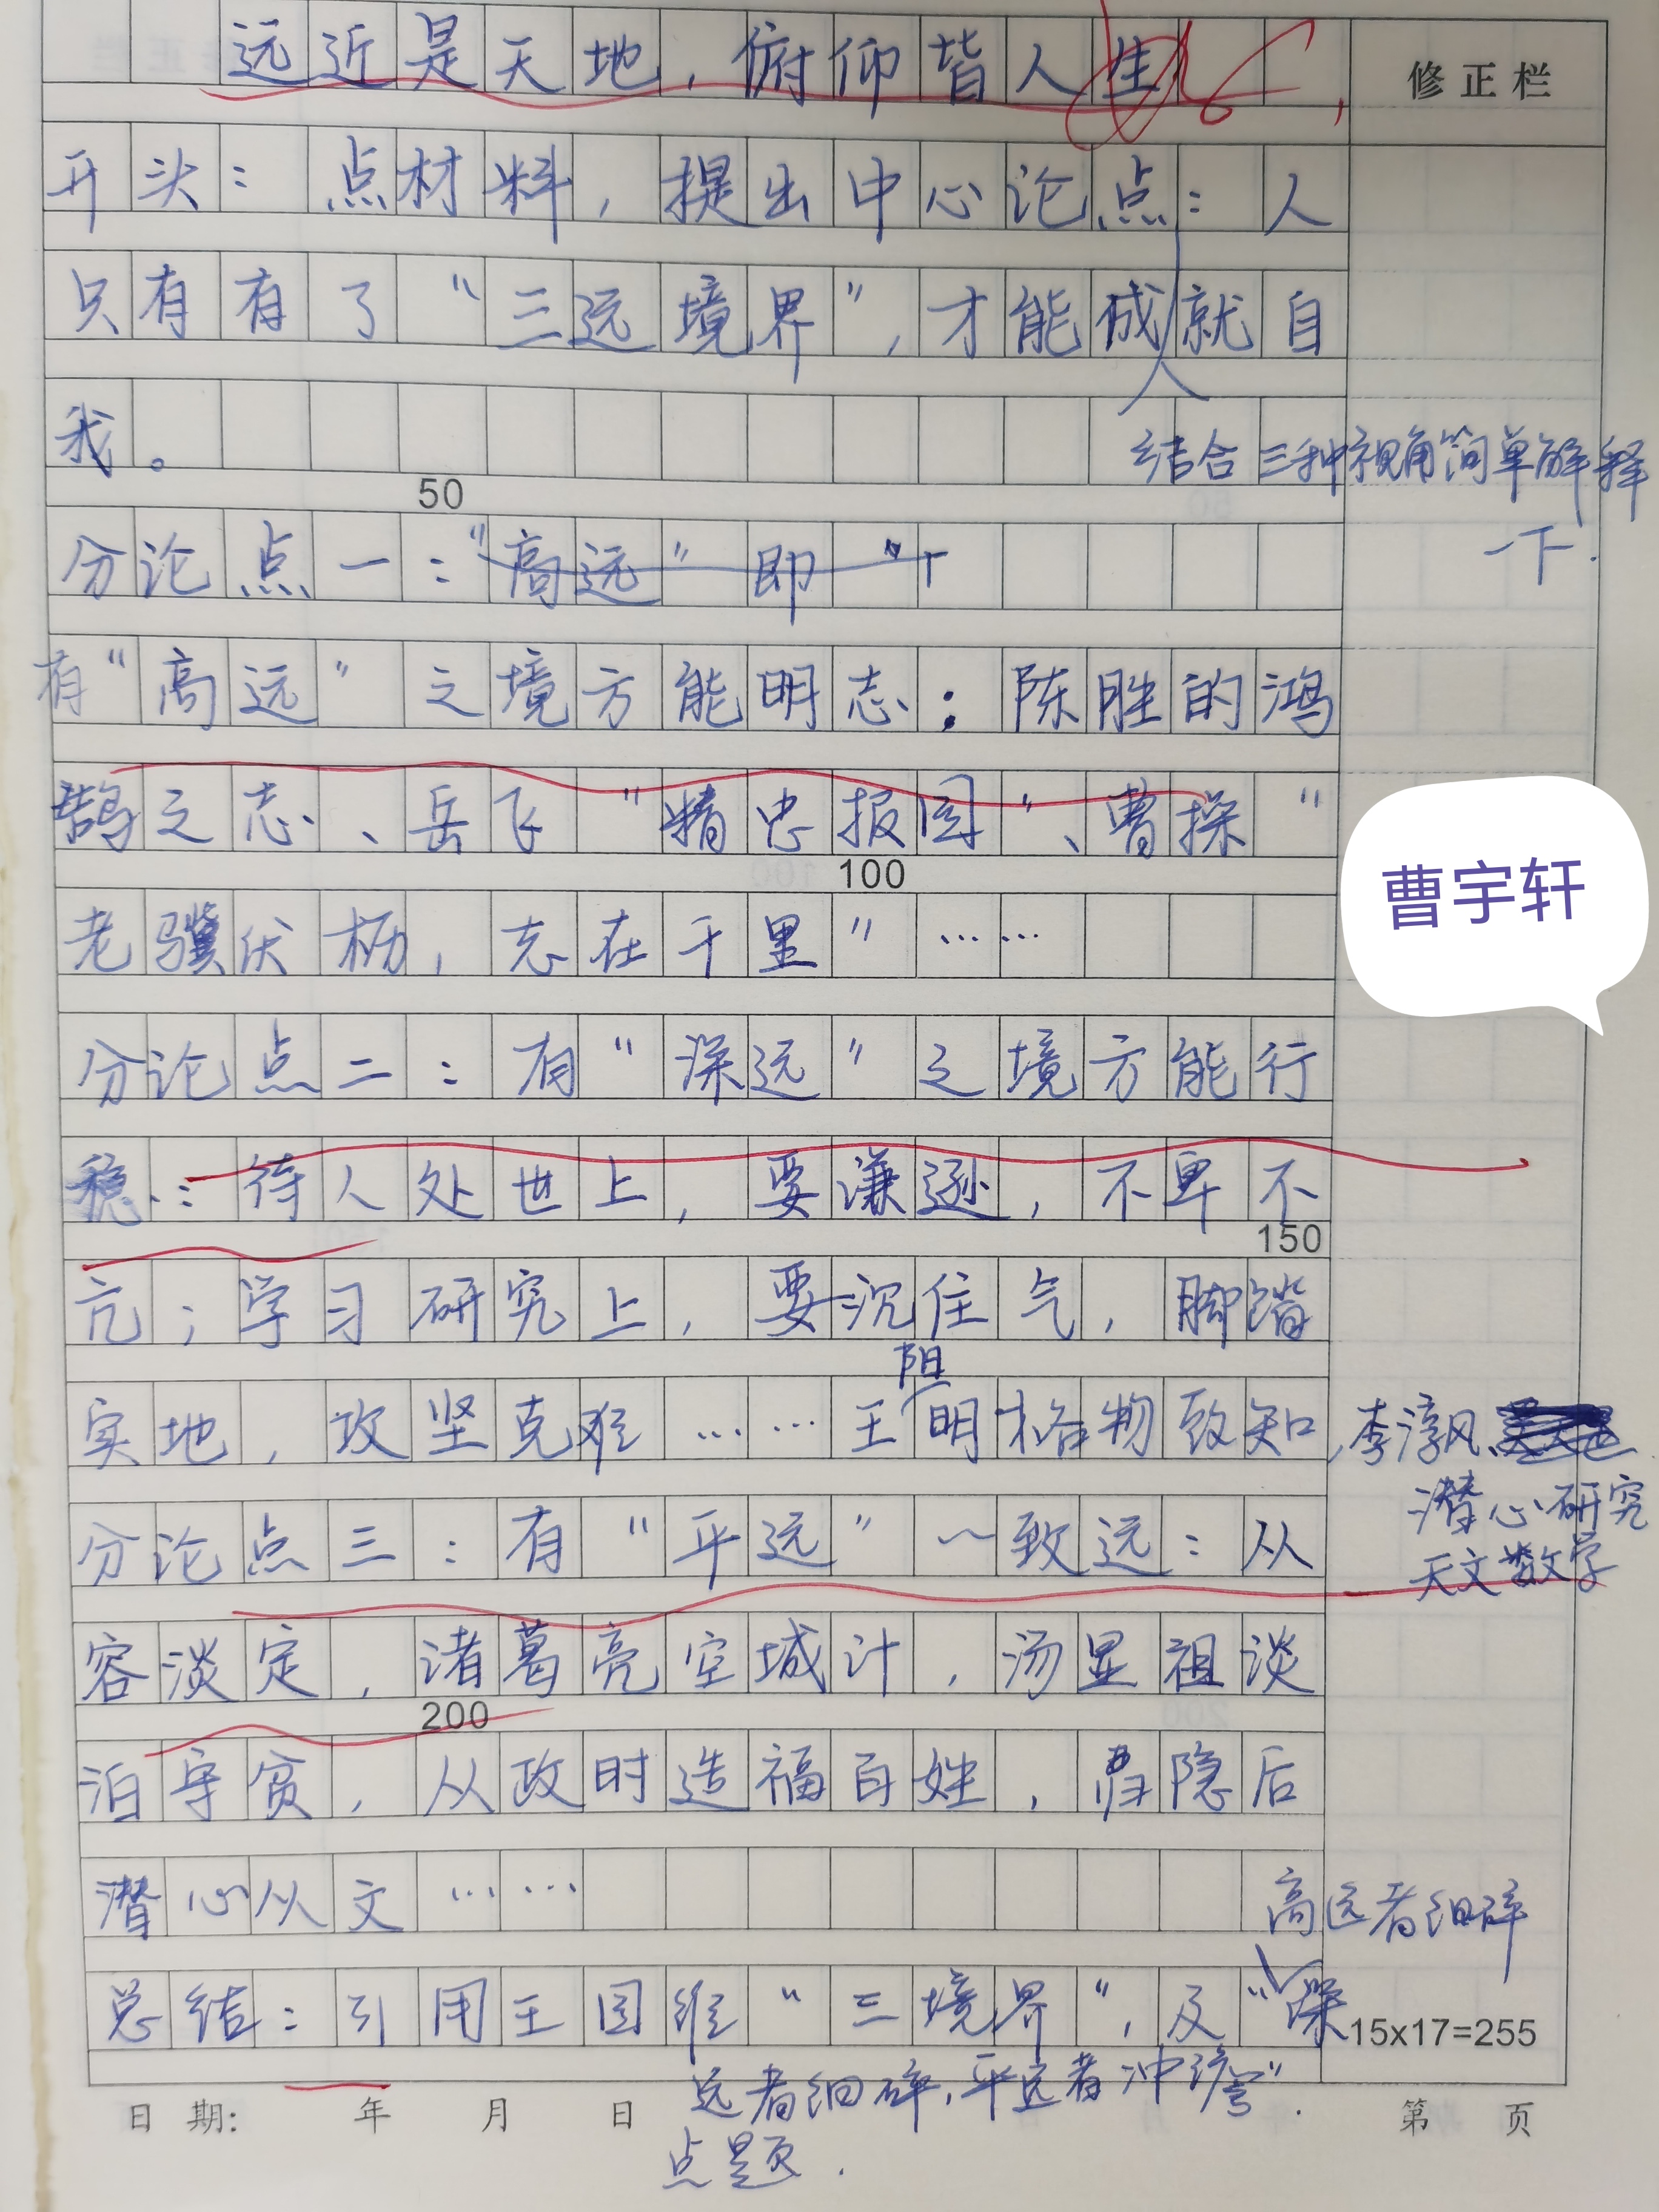 远近是天地，俯仰皆人生
修正栏
开头：点材料，提出中心论点：人
只有有了“三远境界”，才能成就自
我。
结合三种视角简单解释
一下.
50
分论点一：“高远”即“
有“高远”之境方能明志：陈胜的鸿
鹄之志、岳飞“精忠报国”、曹操“
曹宇轩
100
老骥伏枥，志在千里”……
分论点二：有“深远”之境方能行
稳：待人处世上，要谦逊，不卑不
150
亢；学习研究上，要沉住气，脚踏
实地，攻坚克难……王阳明格物致知，李淳风
潜心研究
天文数学
分论点三：有“平远”～致远：从
容淡定，诸葛亮空城计，汤显祖淡
200
泊守贫，从政时造福百姓，归隐后
潜心从文……
总结：引用王国维“三境界”，及“高远者细碎
深
远者细碎，平远者冲澹”.
点题.
15x17=255
日期: 年 月 日
第 页